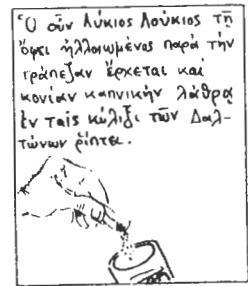 Ὁ οὖν Λύκιος Λούκιος τῇ
ὄψει ἠλλοιωμένος παρὰ τὴν
τράπεζαν ἔρχεται καὶ
κονίαν καπνικὴν λάθρᾳ
ἐν ταῖς κύλιξι τῶν Δαλ-
τώνων ῥίπτει.